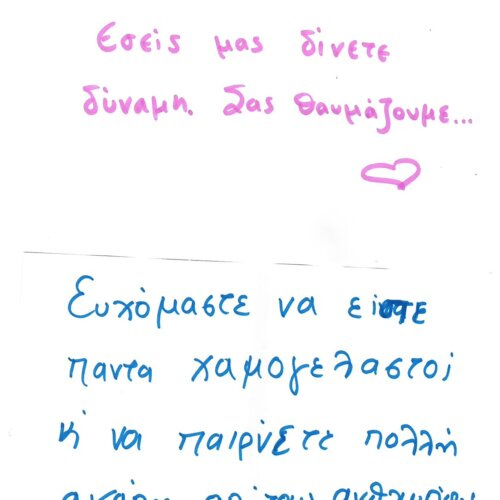 Εσείς μας δίνετε
δύναμη. Σας θαυμάζουμε...
Ευχόμαστε να είστε
παντα χαμογελαστοί
κ να παίρνετε πολλή